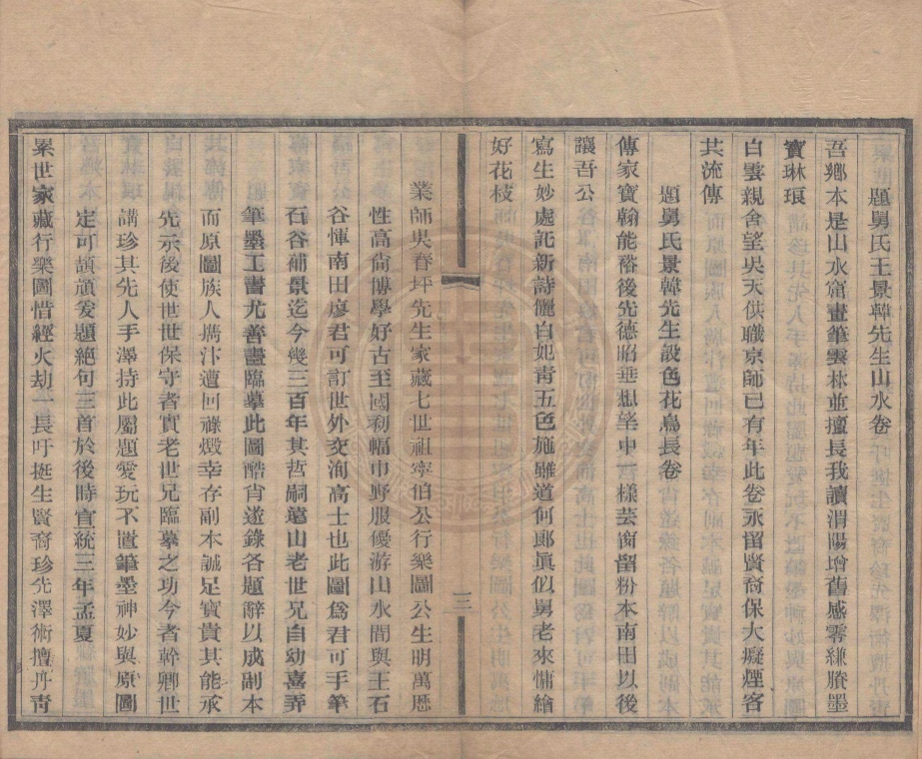 題舅氏王景韓先生山水卷
吾鄉本是山水窟畫筆雲林並擅長我讀渭陽增舊感零縑賸墨
寶琳琅
白雲親舍望吳天供職京師已有年此卷永留賢裔保大癡煙客
共流傳
題舅氏景韓先生設色花鳥長卷
傳家寶翰能裕後先德昭垂想望中西樣芸窗留粉本南田以後
讓吾公
寫生妙處託新詩儷白妃青五色施雖道何郎眞似舅老來慵繪
好花枝
業師吳春坪先生家藏七世祖寧伯公行樂圖公生明萬厯
性高尙博學好古至國初幅巾野服優游山水間與王石
谷惲南田廖君可訂世外交洵高士也此圖爲君可手筆
石谷補景迄今幾三百年其哲嗣遠山老世兄自幼喜弄
筆墨工書尤善畫臨摹此圖酷肖遂錄各題辭以成副本
而原圖族人攜汴遭回祿燬幸存副本誠足寶貴其能承
先示後使世世保守者實老世兄臨摹之功今者幹卿世
講珍其先人手澤持此屬題愛玩不置筆墨神妙與原圖
定可頡頏爰題絕句三首於後時宣統三年孟夏
累世家藏行樂圖惜經火劫一長吁挺生賢裔珍先澤術擅丹靑
三